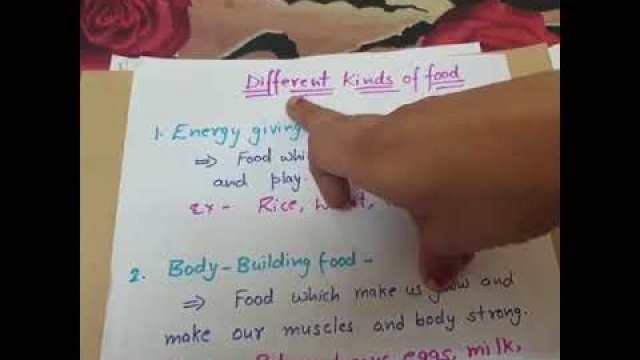 Different kinds of food
1. Energy giving
⇒ Food whi
and play.
Ex- Rice,
2. Body-Building food-
⇒ Food which make us grow and
make our muscles and body strong.
eggs, milk,